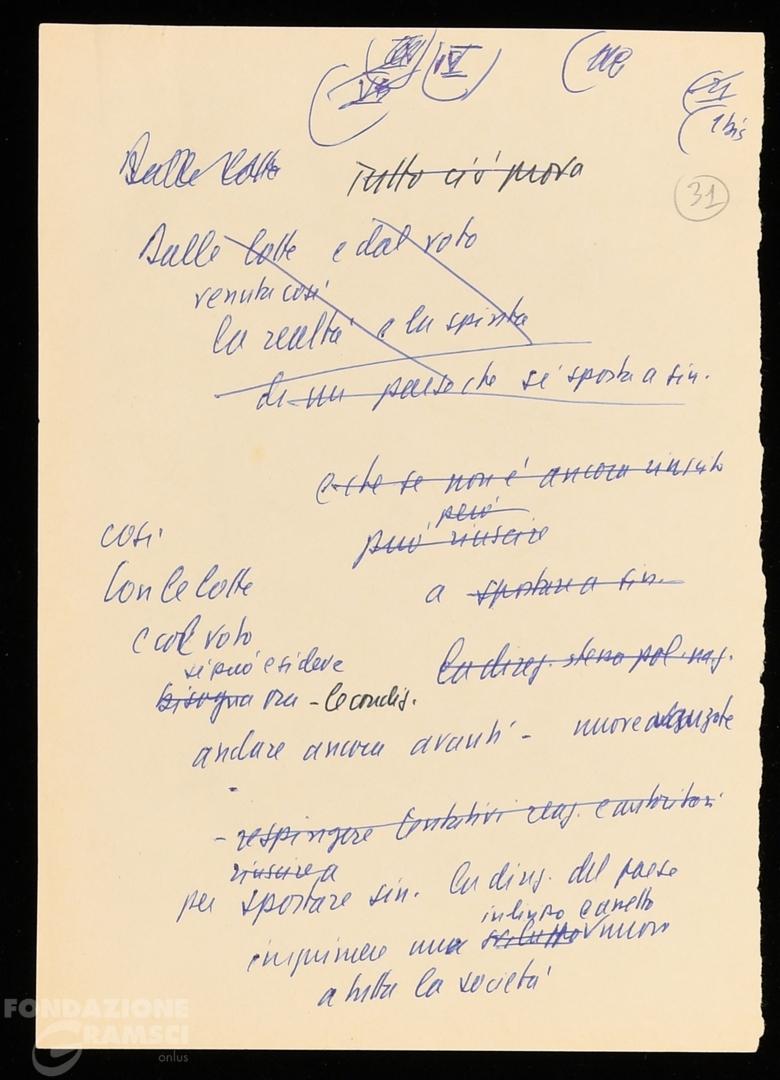 IV
1 bis
31
Dalle lotte
Tutto ciò prova
Dalle lotte e dal voto
venuta così
la realtà e la spinta
di un paese che si sposta a sin.
e che se non è ancora riuscito
però
può riuscire
così
Con le lotte
a spostare a sin.
e col voto
si può e si deve
la direz. pol. naz.
bisogna ora - le condiz.
andare ancora avanti - nuove avanzate
- respingere tentativi reaz. e autoritari
riuscire a
per spostare sin. la direz. del paese
indirizzo e assetto
imprimere una sviluppo nuovo
a tutta la società
FONDAZIONE
GRAMSCI
onlus